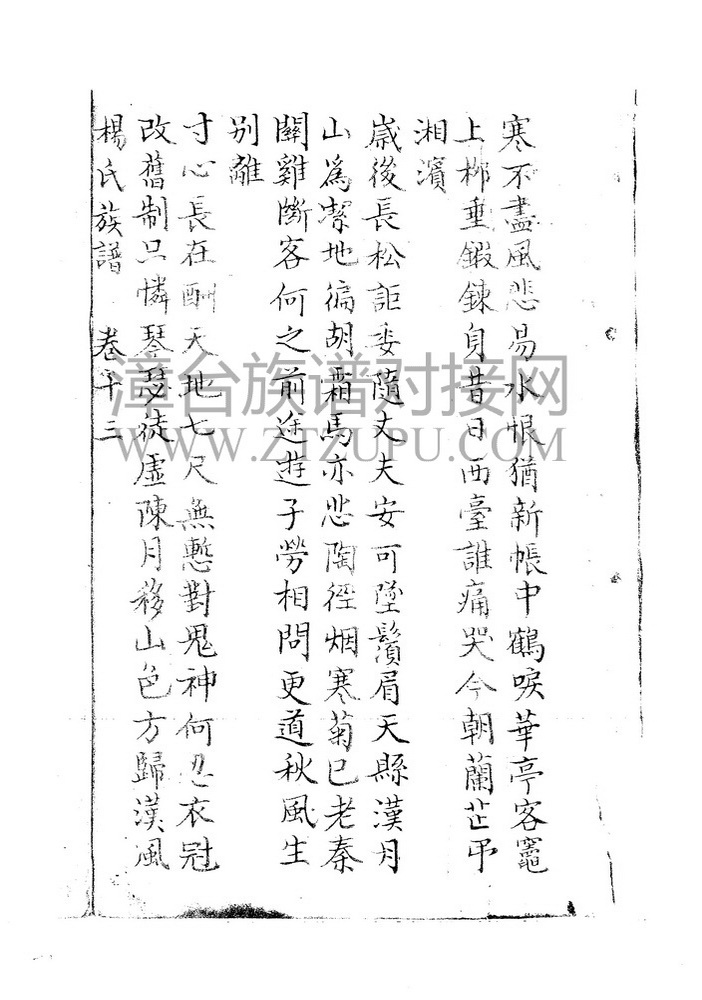 寒不盡風悲易水恨猶新帳中鶴唳華亭客竈
上柳垂鍛鍊身昔日西臺誰痛哭今朝蘭芷弔
湘濱
嵗後長松詎委隨丈夫安可墜鬚眉天縣漢月
山為潔地徧胡霜馬亦悲陶徑烟寒菊已老秦
關雞斷客何之前途遊子勞相問更道秋風生
别離
寸心長在酬天地七尺無慙對鬼神何忍衣冠
改舊制只憐琴瑟徒虛陳月移山色方歸漢風
楊氏族譜 卷十三
漳台族谱对接网
WWW.ZTZUPU.COM